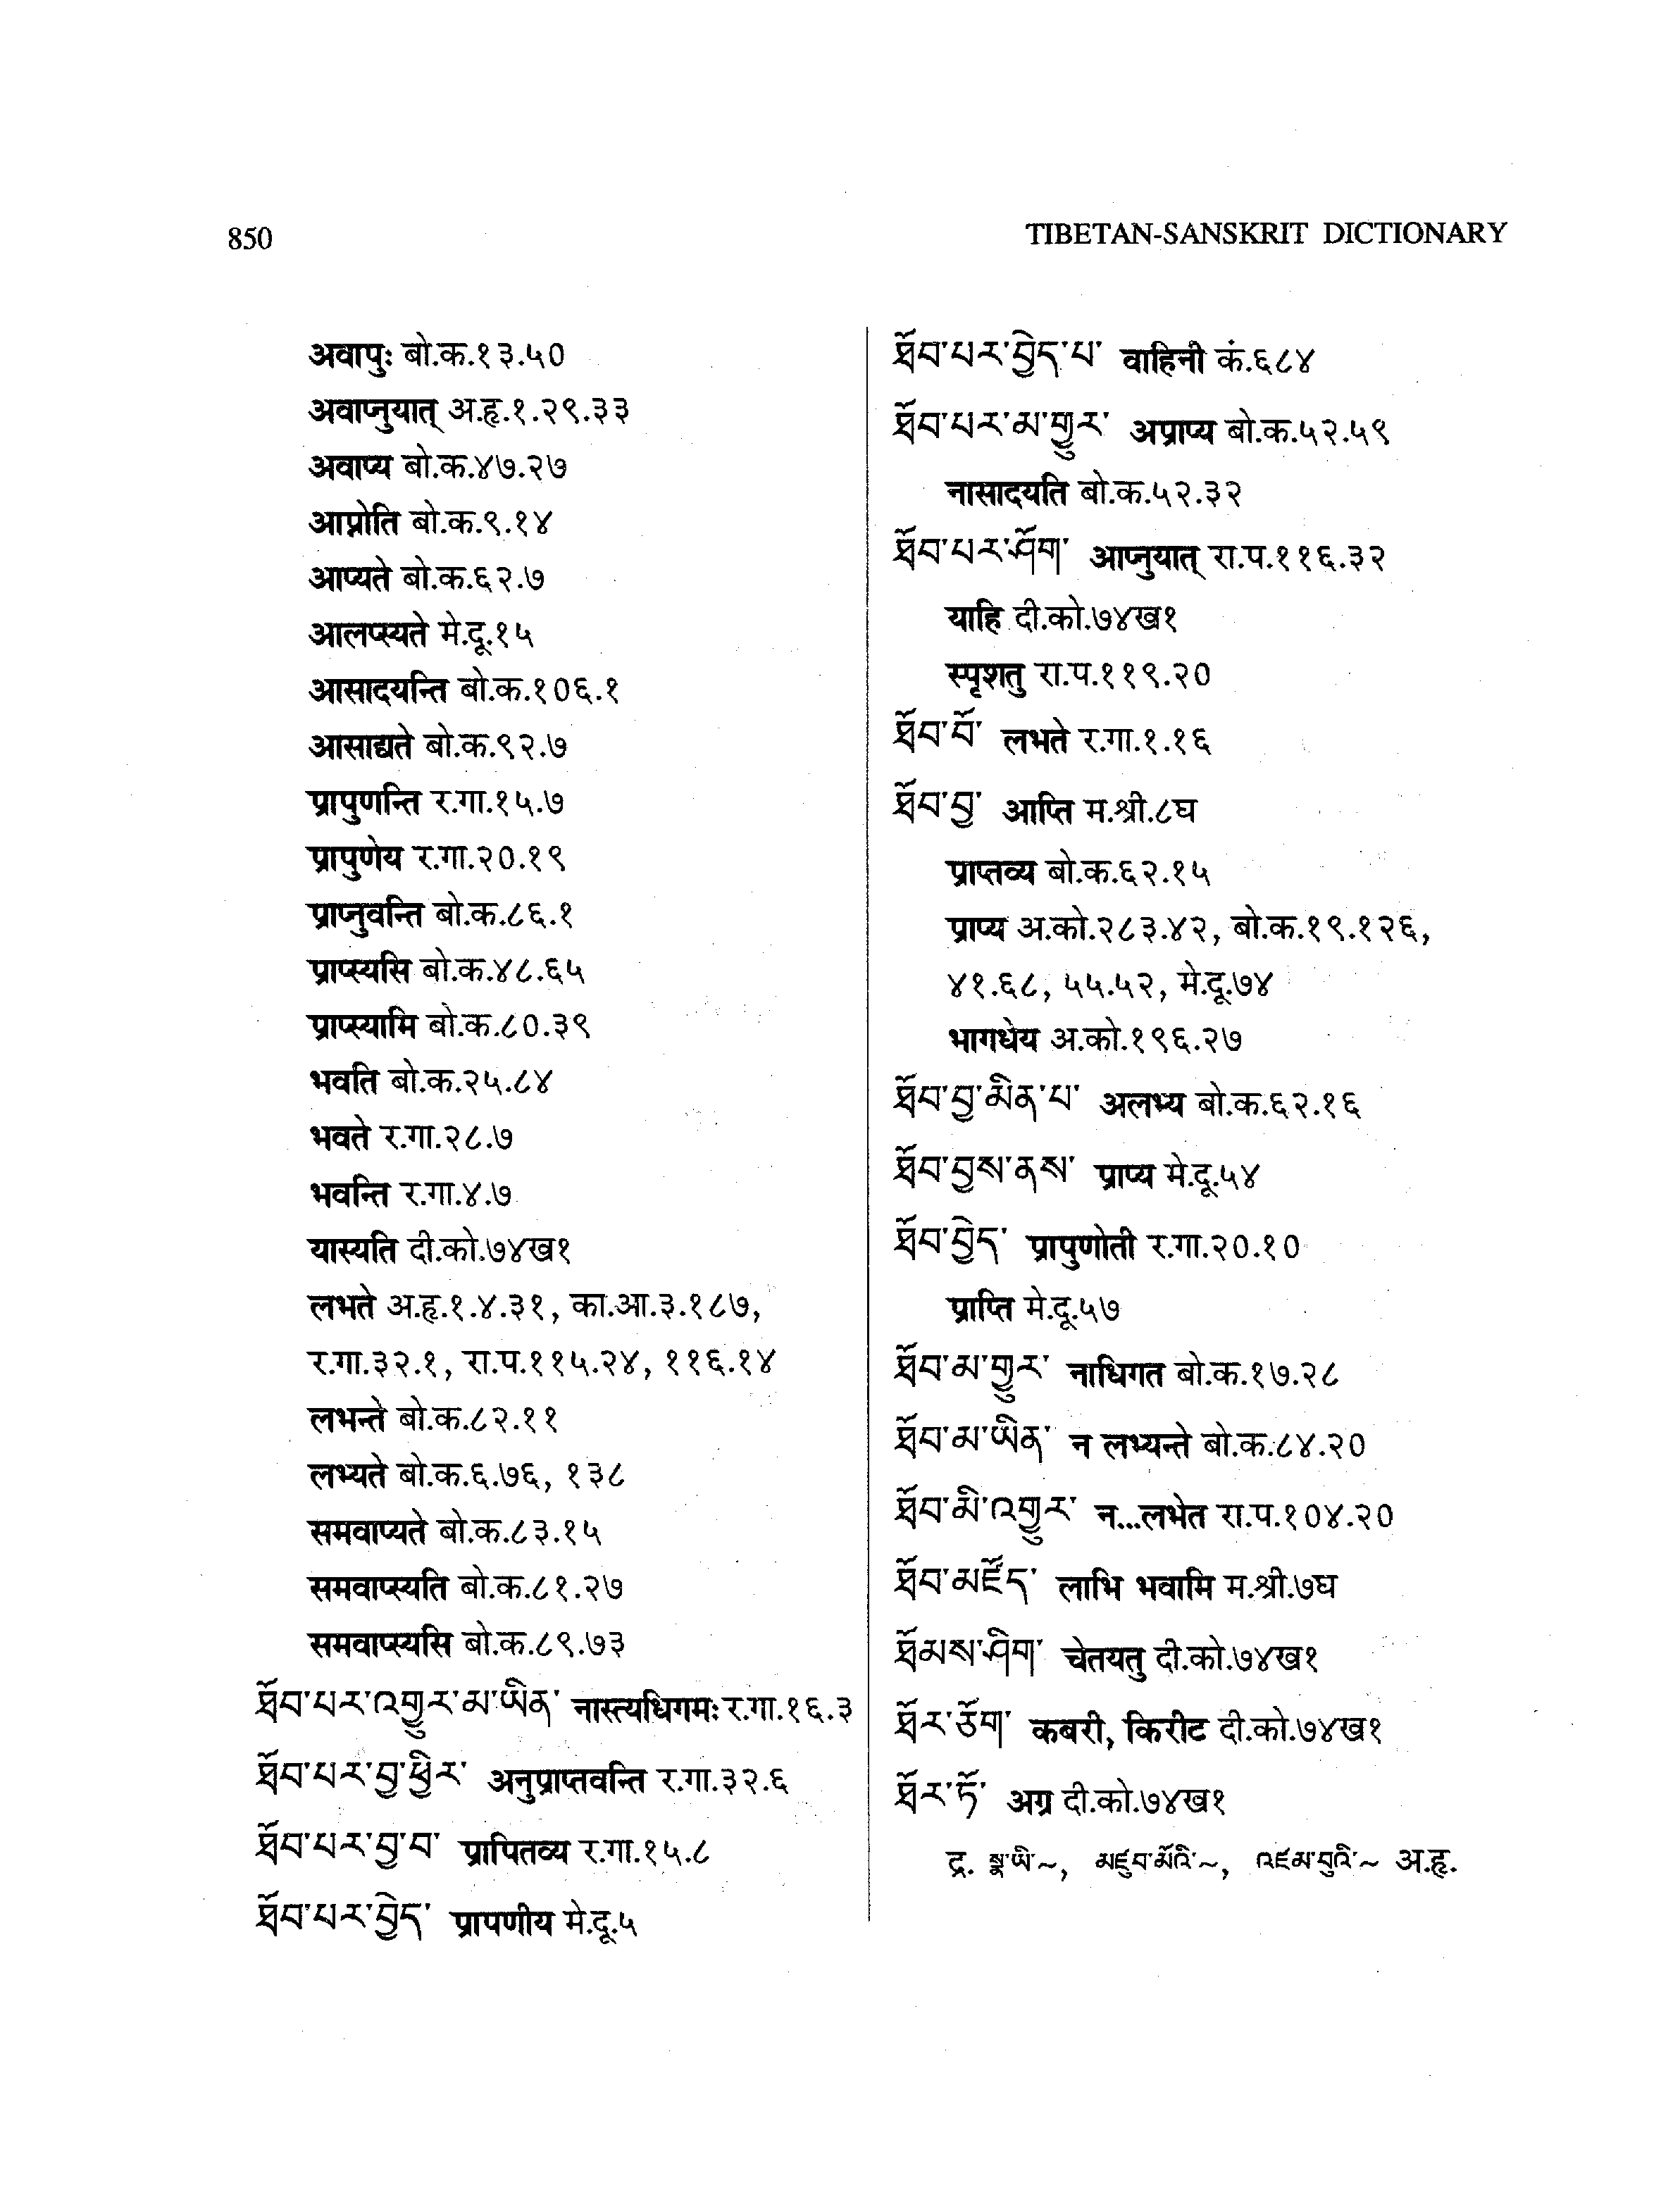 850
TIBETAN-SANSKRIT DICTIONARY
अवापुः बो.क.१३.५०
अवाप्नुयात् अ.हृ.१.२९.३३
अवाप्य बो.क.४७.२७
आप्नोति बो.क.९.१४
आप्यते बो.क.६२.७
आलप्स्यते मे.दू.१५
आसादयन्ति बो.क.१०६.१
आसाद्यते बो.क.९२.७
प्रापुणन्ति र.गा.१५.७
प्रापुणेय र.गा.२०.१९
प्राप्नुवन्ति बो.क.८६.१
प्राप्स्यसि बो.क.४८.६५
प्राप्स्यामि बो.क.८०.३९
भवति बो.क.२५.८४
भवते र.गा.२८.७
भवन्ति र.गा.४.७
यास्यति दी.को.७४ख१
लभते अ.हृ.१.४.३१, का.आ.३.१८७,
र.गा.३२.१, रा.प.११५.२४, ११६.१४
लभन्ते बो.क.८२.११
लभ्यते बो.क.६.७६, १३८
समवाप्यते बो.क.८३.१५
समवाप्स्यति बो.क.८१.२७
समवाप्स्यसि बो.क.८९.७३
ཐོབ་པར་འགྱུར་མ་ཡིན་ नास्त्यधिगमः र.गा.१६.३
ཐོབ་པར་བྱ་ཕྱིར་ अनुप्राप्तवन्ति र.गा.३२.६
ཐོབ་པར་བྱ་བ་ प्रापितव्य र.गा.१५.८
ཐོབ་པར་བྱེད་ प्रापणीय मे.दू.५
ཐོབ་པར་བྱེད་པ་ वाहिनी कं.६८४
ཐོབ་པར་མ་གྱུར་ अप्राप्य बो.क.५२.५९
नासादयति बो.क.५२.३२
ཐོབ་པར་ཤོག་ आप्नुयात् रा.प.११६.३२
याहि दी.को.७४ख१
स्पृशतु रा.प.११९.२०
ཐོབ་བོ་ लभते र.गा.१.१६
ཐོབ་བྱ་ आप्ति म.श्री.८घ
प्राप्तव्य बो.क.६२.१५
प्राप्य अ.को.२८३.४२, बो.क.१९.१२६,
४१.६८, ५५.५२, मे.दू.७४
भागधेय अ.को.१९६.२७
ཐོབ་བྱ་མིན་པ་ अलभ्य बो.क.६२.१६
ཐོབ་བྱས་ནས་ प्राप्य मे.दू.५४
ཐོབ་བྱེད་ प्रापुणोती र.गा.२०.१०
प्राप्ति मे.दू.५७
ཐོབ་མ་གྱུར་ नाधिगत बो.क.१७.२८
ཐོབ་མ་ཡིན་ न लभ्यन्ते बो.क.८४.२०
ཐོབ་མི་འགྱུར་ न...लभेत रा.प.१०४.२०
ཐོབ་མཛོད་ लाभि भवामि म.श्री.७घ
ཐོམས་ཤིག་ चेतयतु दी.को.७४ख१
ཐོར་ཅོག་ कबरी, किरीट दी.को.७४ख१
ཐོར་ཏོ་ अग्र दी.को.७४ख१
द्र. སྣ་ཡི་~, མཛུབ་མོའི་~, འཛམ་བུའི་~ अ.हृ.